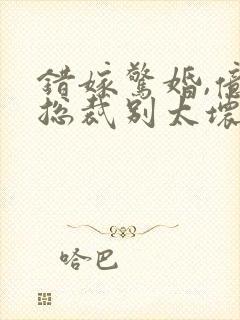 错嫁惊婚,亿
总裁别太坏
哈巴